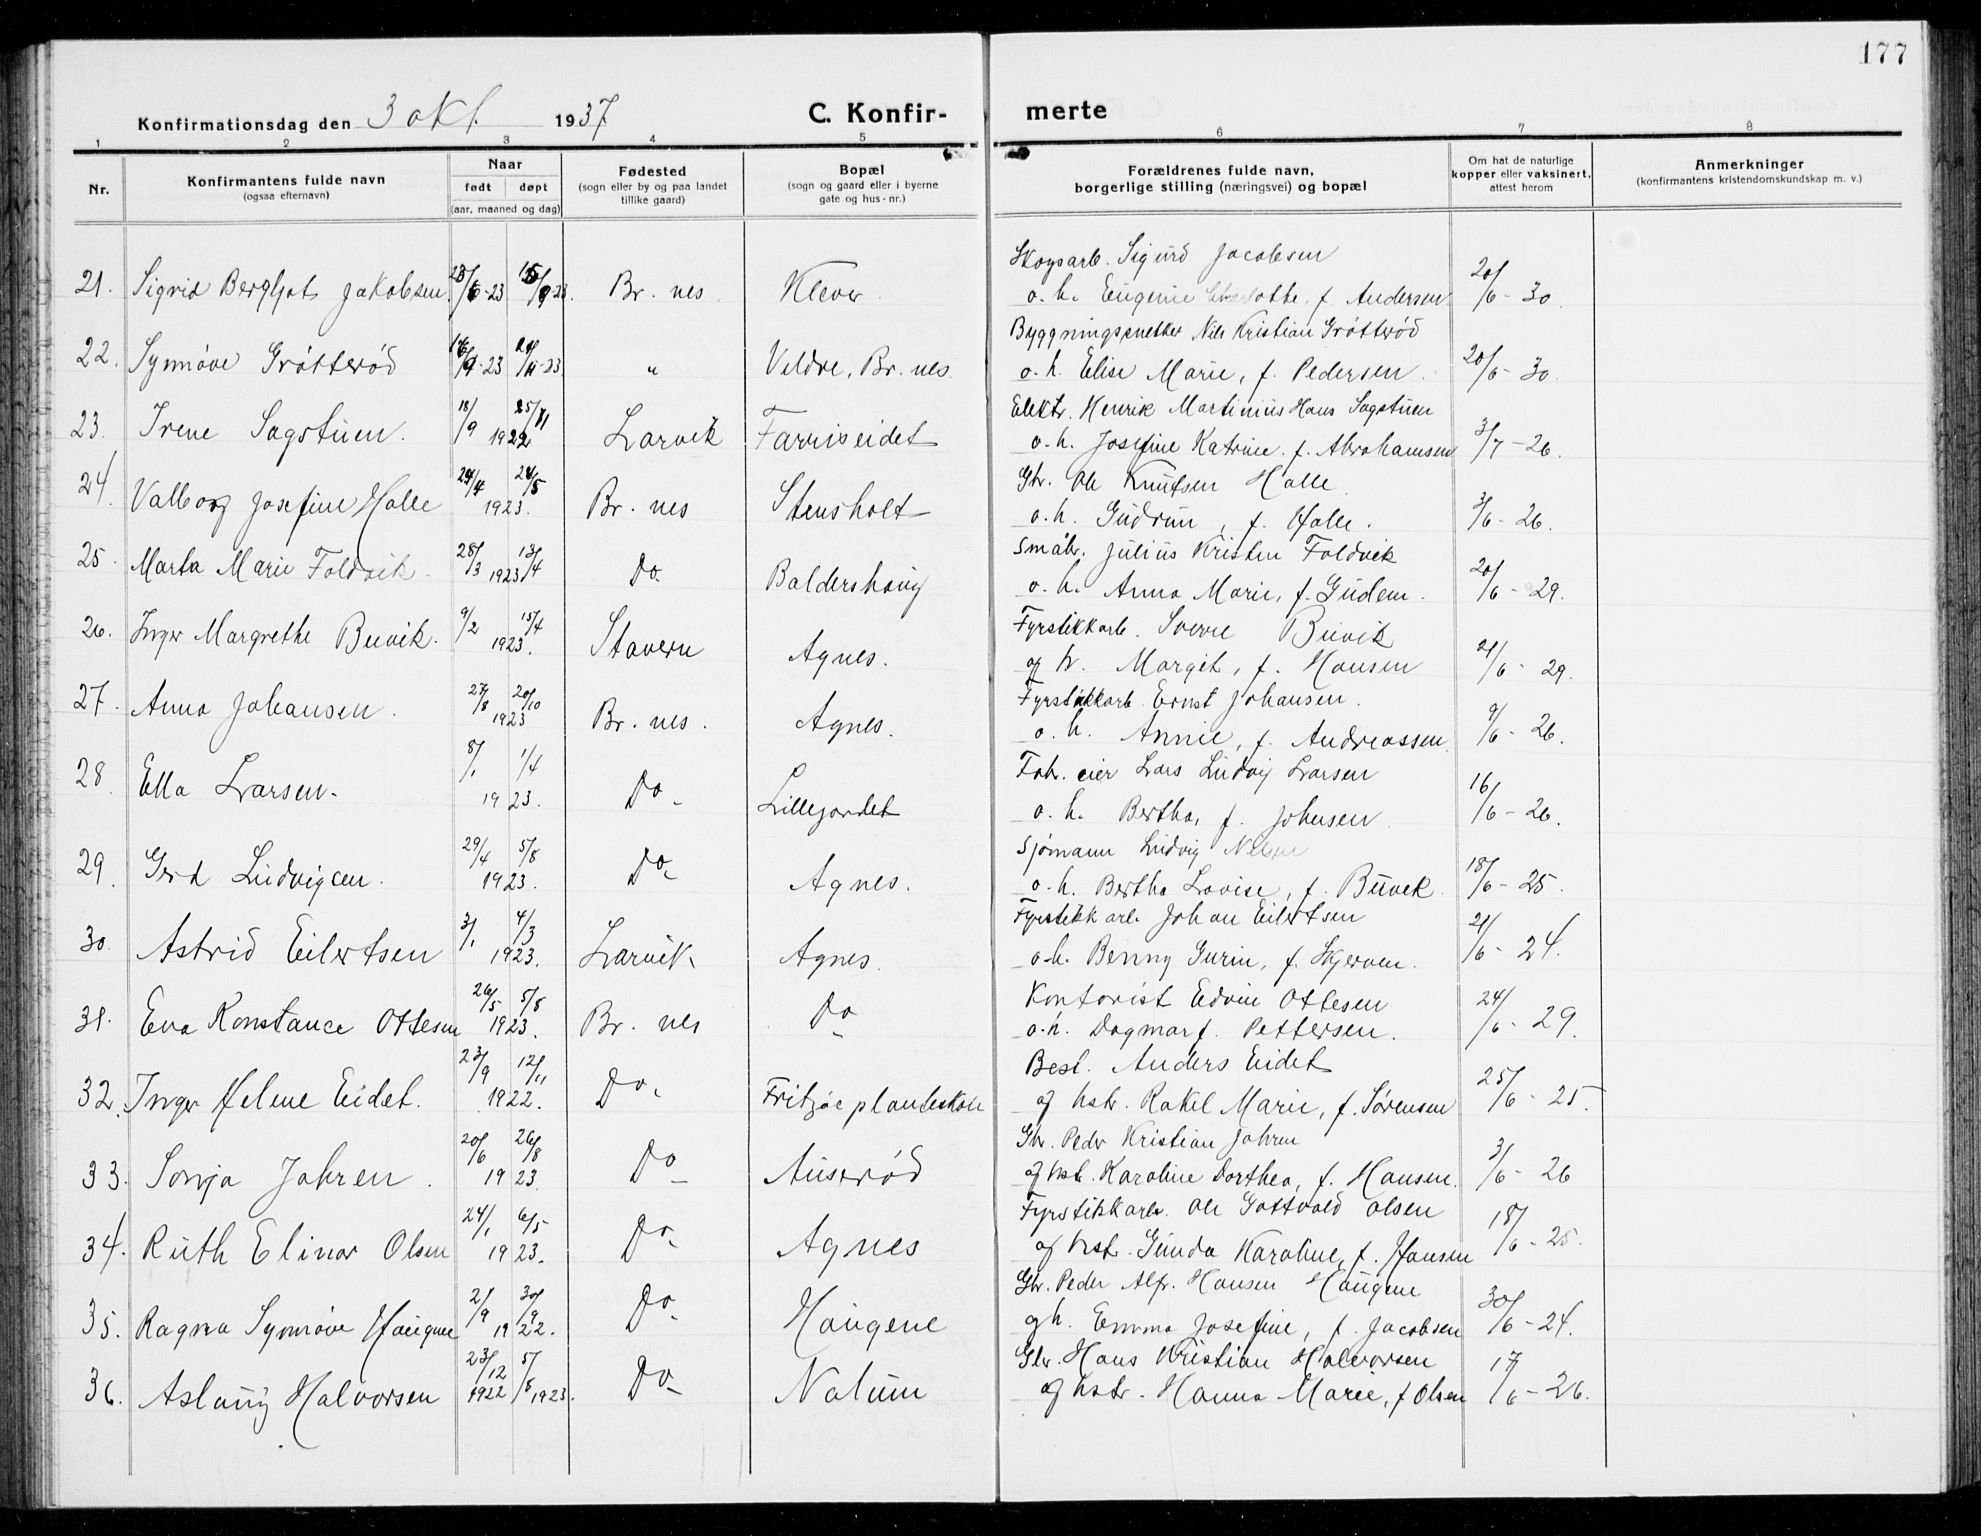 177
Konfirmationsdag den 3 okt. 1937
C. Konfir-
merte
1 2 3 4 5 6 7 8
Nr.
Konfirmantens fulde navn
(ogsaa efternavn)
Naar
født døpt
(aar, maaned og dag)
Fødested
(sogn eller by og paa landet
tillike gaard)
Bopæl
(sogn og gaard eller i byerne
gate og hus-nr.)
Forældrenes fulde navn,
borgerlige stilling (næringsvei) og bopæl
Om hat de naturlige
kopper eller vaksinert,
attest herom
Anmerkninger
(konfirmantens kristendomskundskap m. v.)
Skogsarb. Sigurd Jacobsen
21. Sigrid Bergljot Jakobsen 6-23 9-23. Br. nes Klever
o. h. Eugenie Charlotte, f. Andersen 20/6 - 30.
Byggningssnekker Nils Kristian Grøtterød
22. Synnøve Grøtterød -23 -23 " Veldre, Br. nes
o. h. Elise Marie, f. Pedersen. 20/6 - 30.
Elektr. Henrik Martinius Hans Sagstuen
23. Irene Sagstuen. 18/9 25/11 1922 Larvik Farriseidet
o. h. Josefine Katrine. f. Abrahamsen 3/7 - 26.
Gbr. Ole Knutsen Halle
24. Valborg Josefine Halle 24/4 24/5 1923. Br. nes Stensholt
o. h. Gudrun, f. Halle. 3/6 - 26.
Småbr. Julius Kristen Foldvik
25. Marta Marie Foldvik. 28/3 1923 13/4 Do. Baldershaug
o. h. Anna Marie, f. Gudem. 20/6 - 29.
Fyrstikkarb. Sverre Buvik
26. Inger Margrethe Buvik. 9/2 15/4 1923. Stavern Agnes.
og h. Margit, f. Hansen 21/6 - 29.
Fyrstikkarb. Ernst Johansen.
27. Anna Johansen. 27/8 20/10 1923 Br. nes. Agnes.
o. h. Annie, f. Andreassen. 9/6 - 26.
Fab. eier Lars Ludvig Larsen
28. Ella Larsen. 8/1 1/4 1923. Do. Lillejordet
o. h. Bertha, f. Johnsen 16/6 - 26.
Sjømann Ludvig Nelsen
29. Gerd Ludvigcen. 29/4 5/8 1923. Do. Agnes.
o. h. Bertha Lovise, f. Buvek. 18/6 - 25.
Fyrstikk arb. Johan Eilertsen
30. Astrid Eilertsen 3/1 4/3 1923. Larvik. Agnes.
o. h. Benny Gurin, f. Skjerven. 21/6 - 24.
Kontorist Edvin Ottesen
31. Eva Konstance Ottesen 26/5 5/8 1923. Br. nes Do
o. h. Dagmar f. Pettersen. 24/6 - 29.
Best. Anders Eidet
32. Inger Helene Eidet. 23/9 12/11 1922. Do. Fritzøe planteskole
og hstr. Rakel Marie, f. Sørensen 25/6 - 25.
Gbr. Peder Kristian Jahren
33. Sonja Jahren. 20/6 26/8 1923 Do Auserød
og hstr. Karoline Dorthea, f. Hansen. 3/6 - 26
Fyrstikkarb. Ole Gottvald Olsen
34. Ruth Elinor Olsen 24/1 6/5 1923. Do. Agnes
og hstr. Gunda Karoline, f. Hansen 18/6 - 25.
Gbr. Peder Alfr. Hansen Haugene
35. Ragna Synnøve Haugene 2/9 30/9 1922. Do. Haugene
og h. Emma Josefine, f. Jacobsen 30/6 - 24.
Gbr. Hans Kristian Halvorsen
36. Aslaug Halvorsen 23/12 1922 5/8 1923. Do. Nalum
og hstr. Hanna Marie, f. Olsen 17/6 - 26.